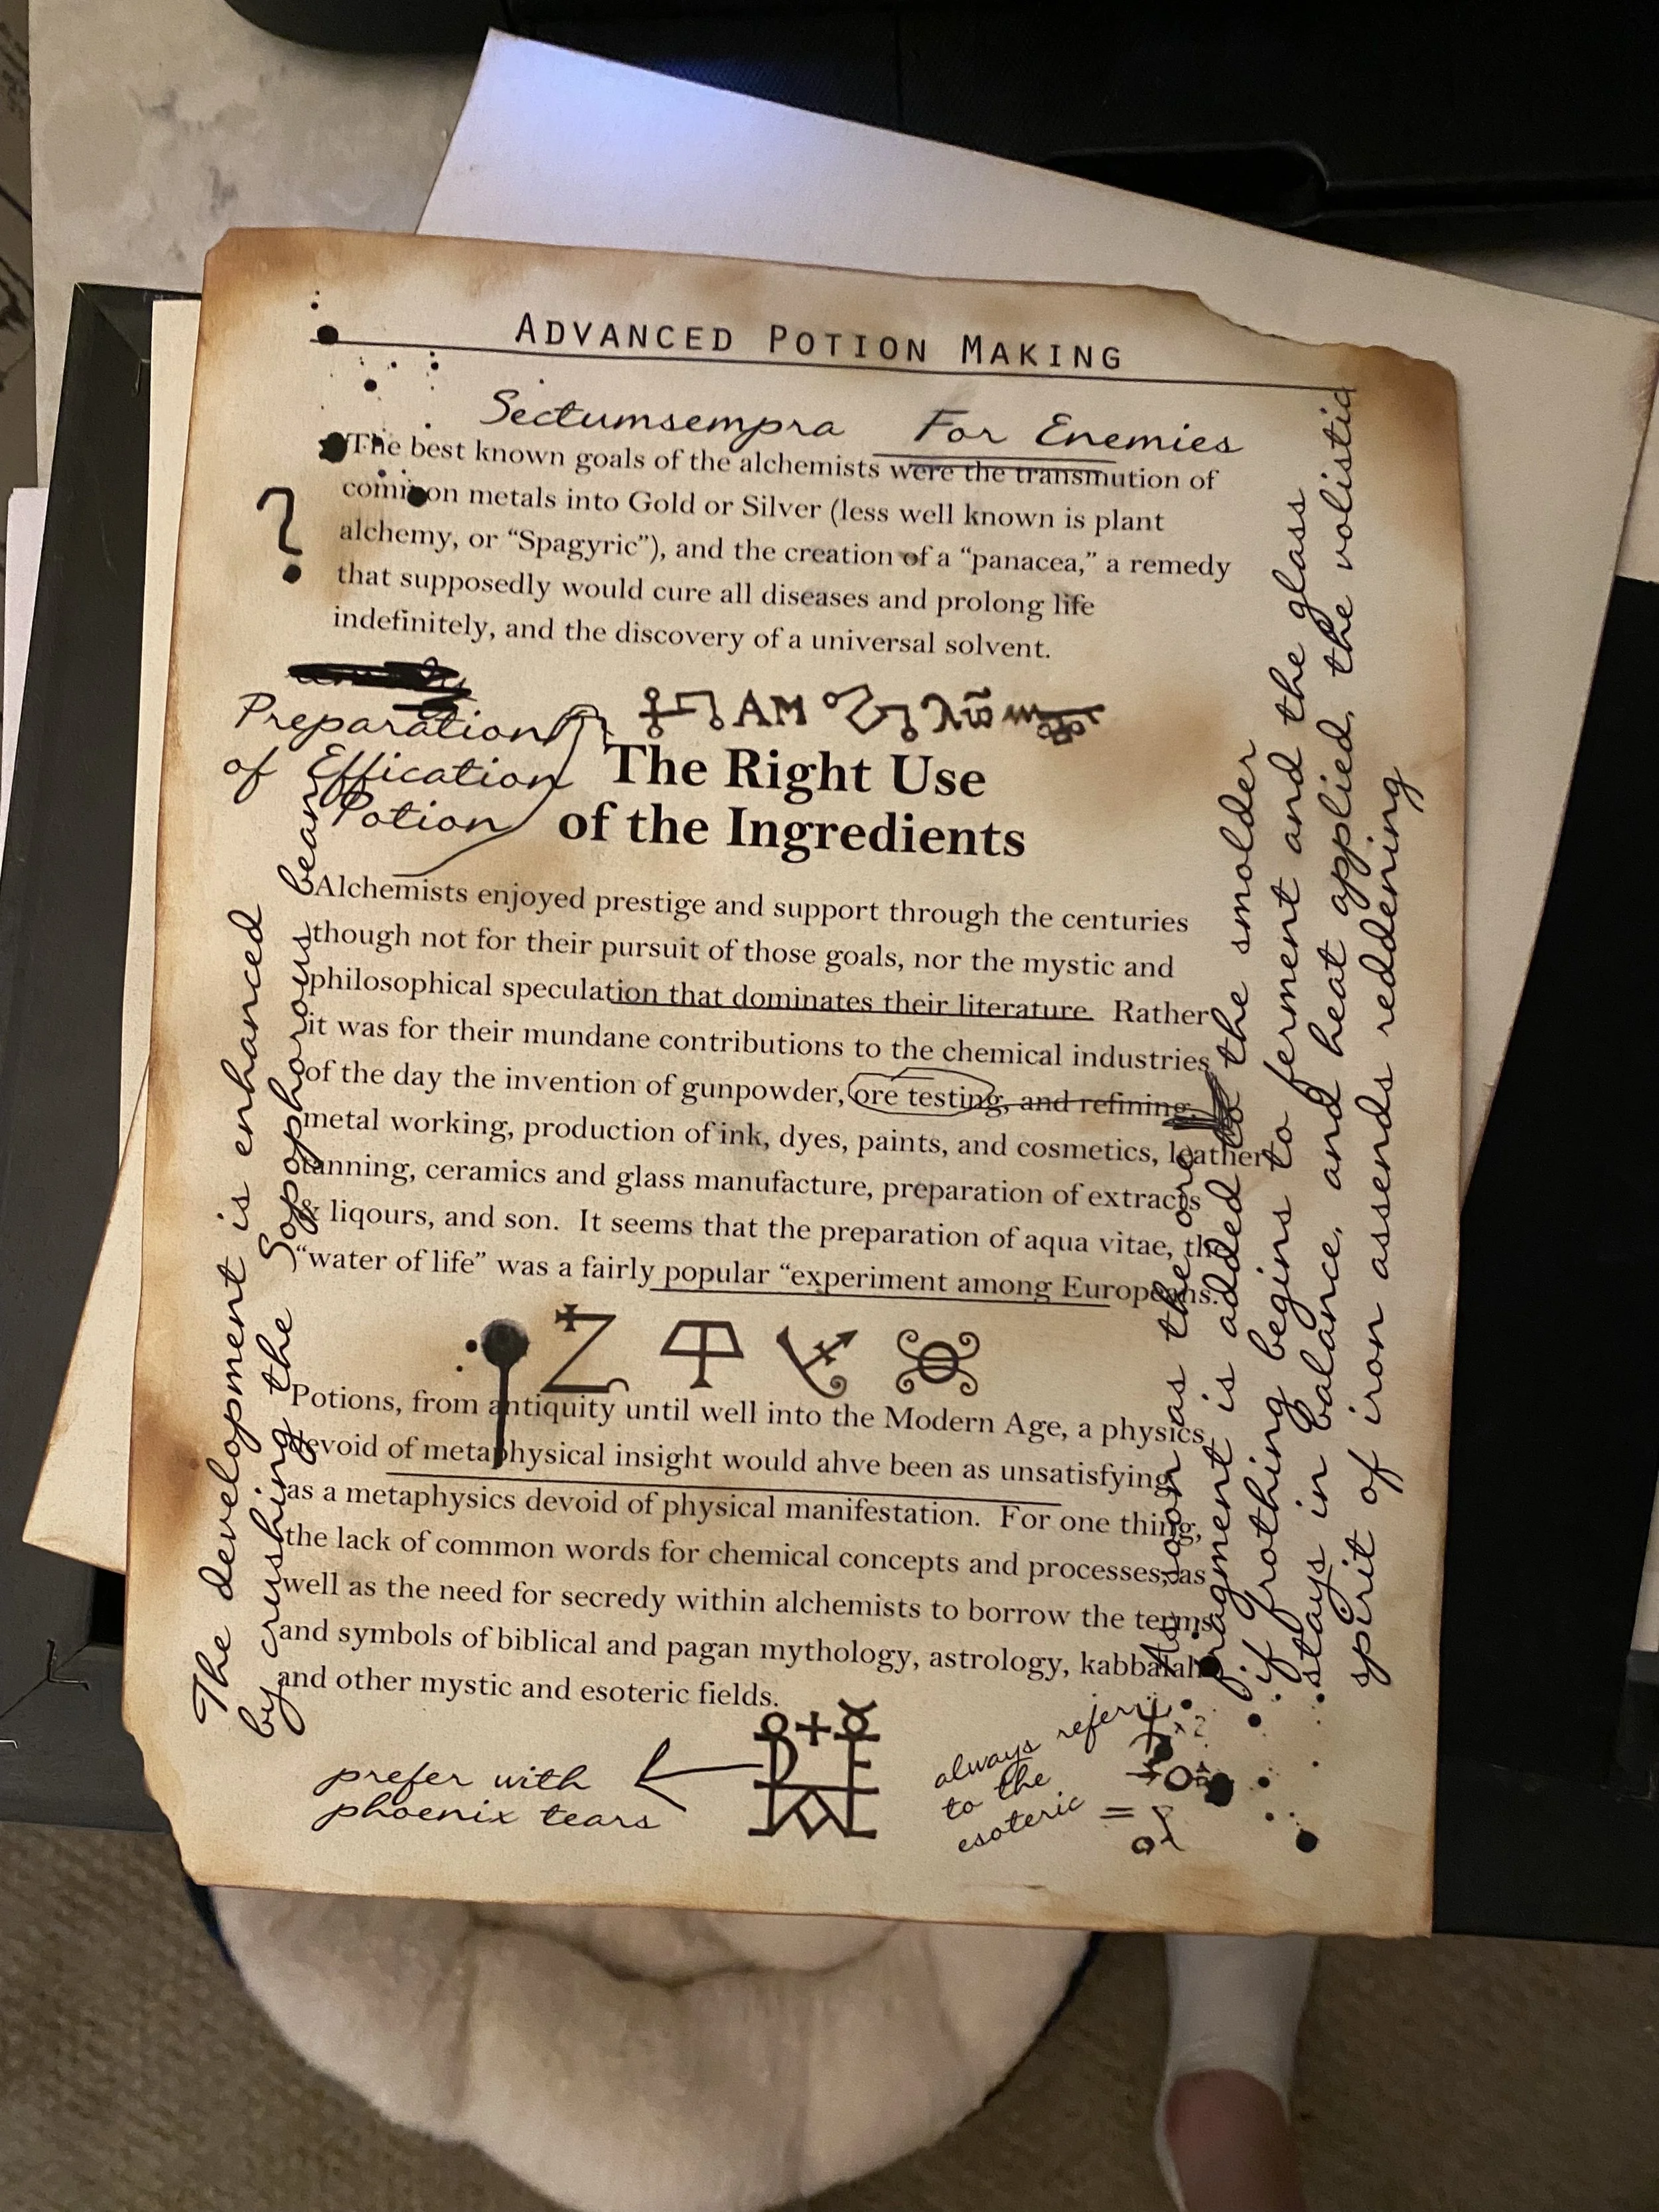 ADVANCED POTION MAKING
Sectumsempra For Enemies
The best known goals of the alchemists were the transmution of
common metals into Gold or Silver (less well known is plant
alchemy, or “Spagyric”), and the creation of a “panacea,” a remedy
that supposedly would cure all diseases and prolong life
indefinitely, and the discovery of a universal solvent.
?
Preparation
of Effication
Potion
AM
The Right Use
of the Ingredients
Alchemists enjoyed prestige and support through the centuries
though not for their pursuit of those goals, nor the mystic and
philosophical speculation that dominates their literature. Rather
it was for their mundane contributions to the chemical industries
of the day the invention of gunpowder, ore testing, and refining,
metal working, production of ink, dyes, paints, and cosmetics, leather
tanning, ceramics and glass manufacture, preparation of extracts
& liqours, and son. It seems that the preparation of aqua vitae, the
“water of life” was a fairly popular “experiment among Europeans.
Potions, from antiquity until well into the Modern Age, a physics
devoid of metaphysical insight would ahve been as unsatisfying
as a metaphysics devoid of physical manifestation. For one thing,
the lack of common words for chemical concepts and processes, as
well as the need for secredy within alchemists to borrow the terms
and symbols of biblical and pagan mythology, astrology, kabbalah
and other mystic and esoteric fields.
prefer with
phoenix tears
always refer
to the
esoteric =
The development is enhanced
by crushing the Sopophorous bean
As soon as the ore
fragment is added to the smolder
if frothing begins to ferment and the glass
stays in balance, and heat applied, the volistic
spirit of iron assends reddening